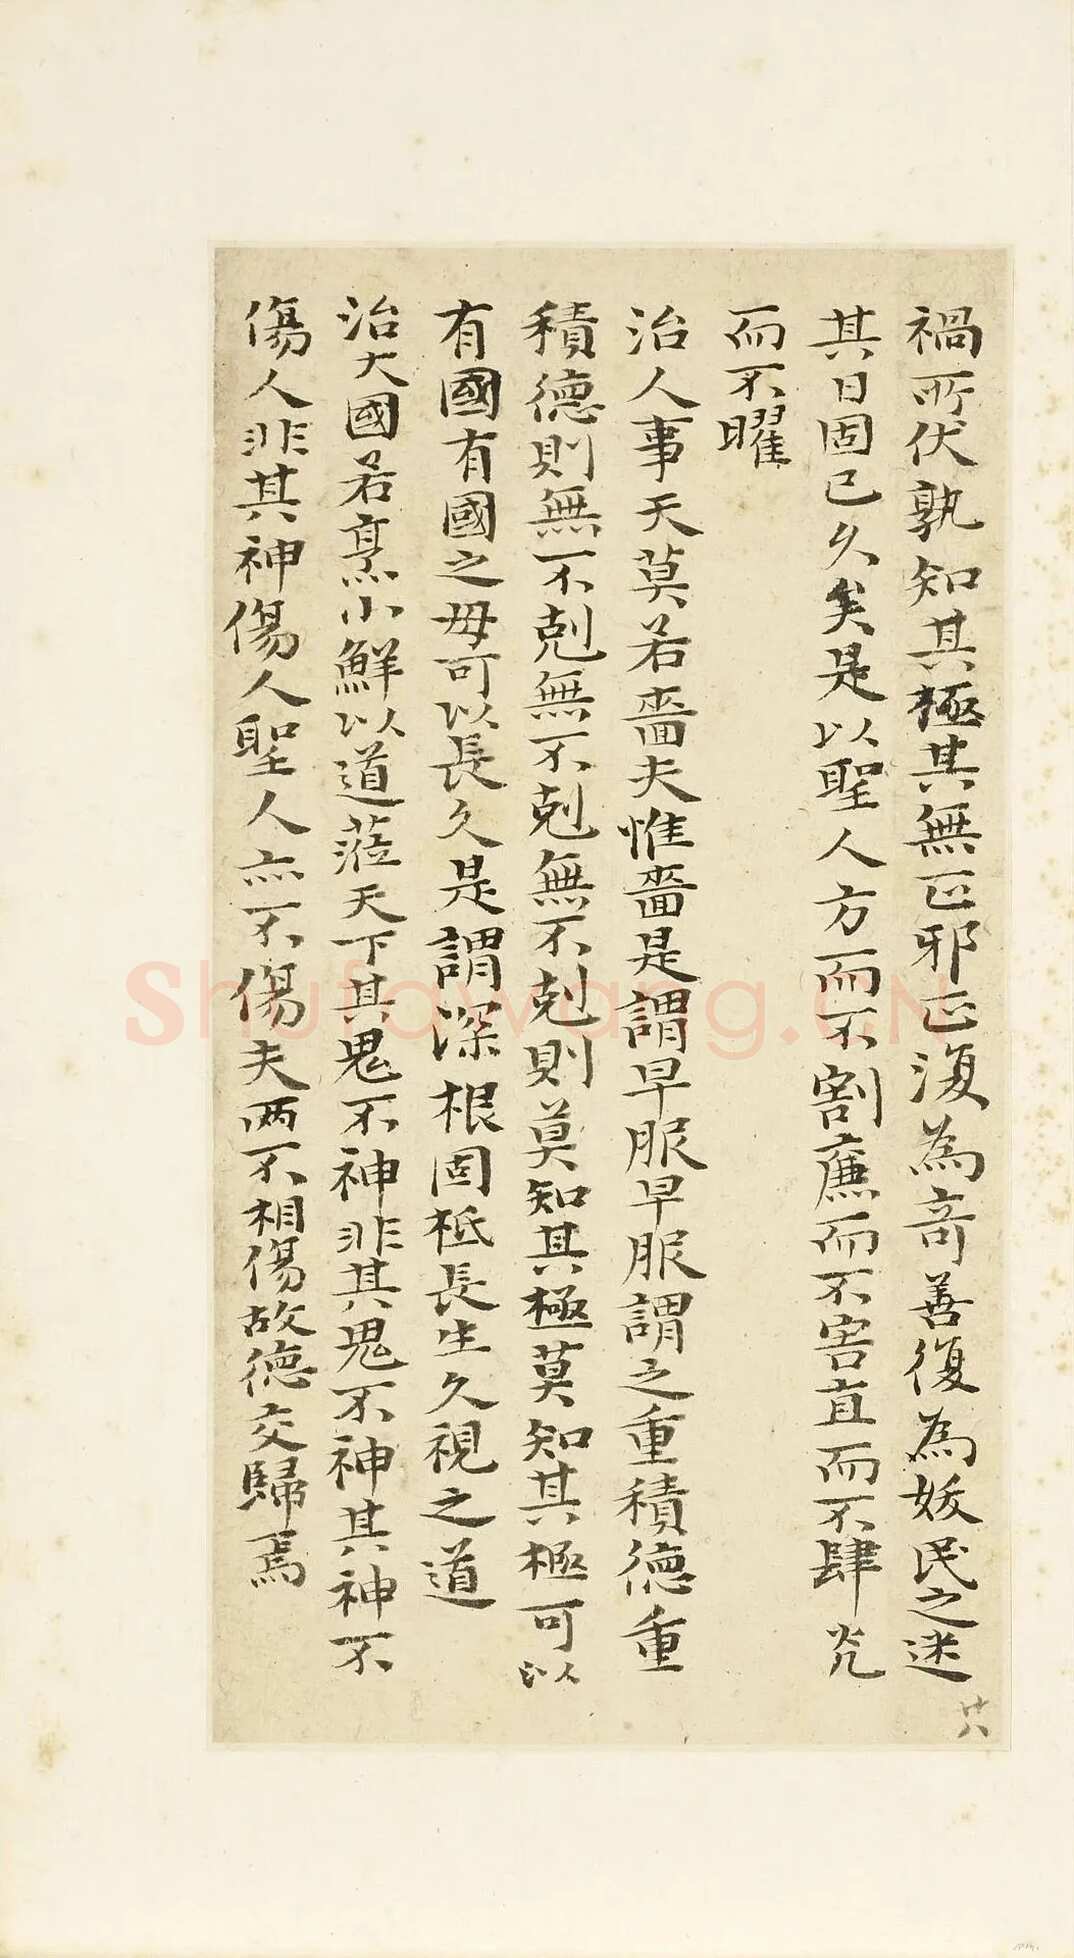 禍所伏孰知其極其無正邪正復為奇善復為妖民之迷
其日固已久矣是以聖人方而不割廉而不害直而不肆光
而不曜
治人事天莫若嗇夫惟嗇是謂早服早服謂之重積德重
積德則無不剋無不剋無不剋則莫知其極莫知其極可以
有國有國之母可以長久是謂深根固柢長生久視之道
治大國若烹小鮮以道蒞天下其鬼不神非其鬼不神其神不
傷人非其神傷人聖人亦不傷夫兩不相傷故德交歸焉
廿八
Shufawang.CN